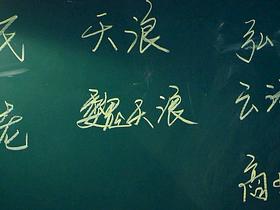 民 天浪 弘
魏天浪 云
商